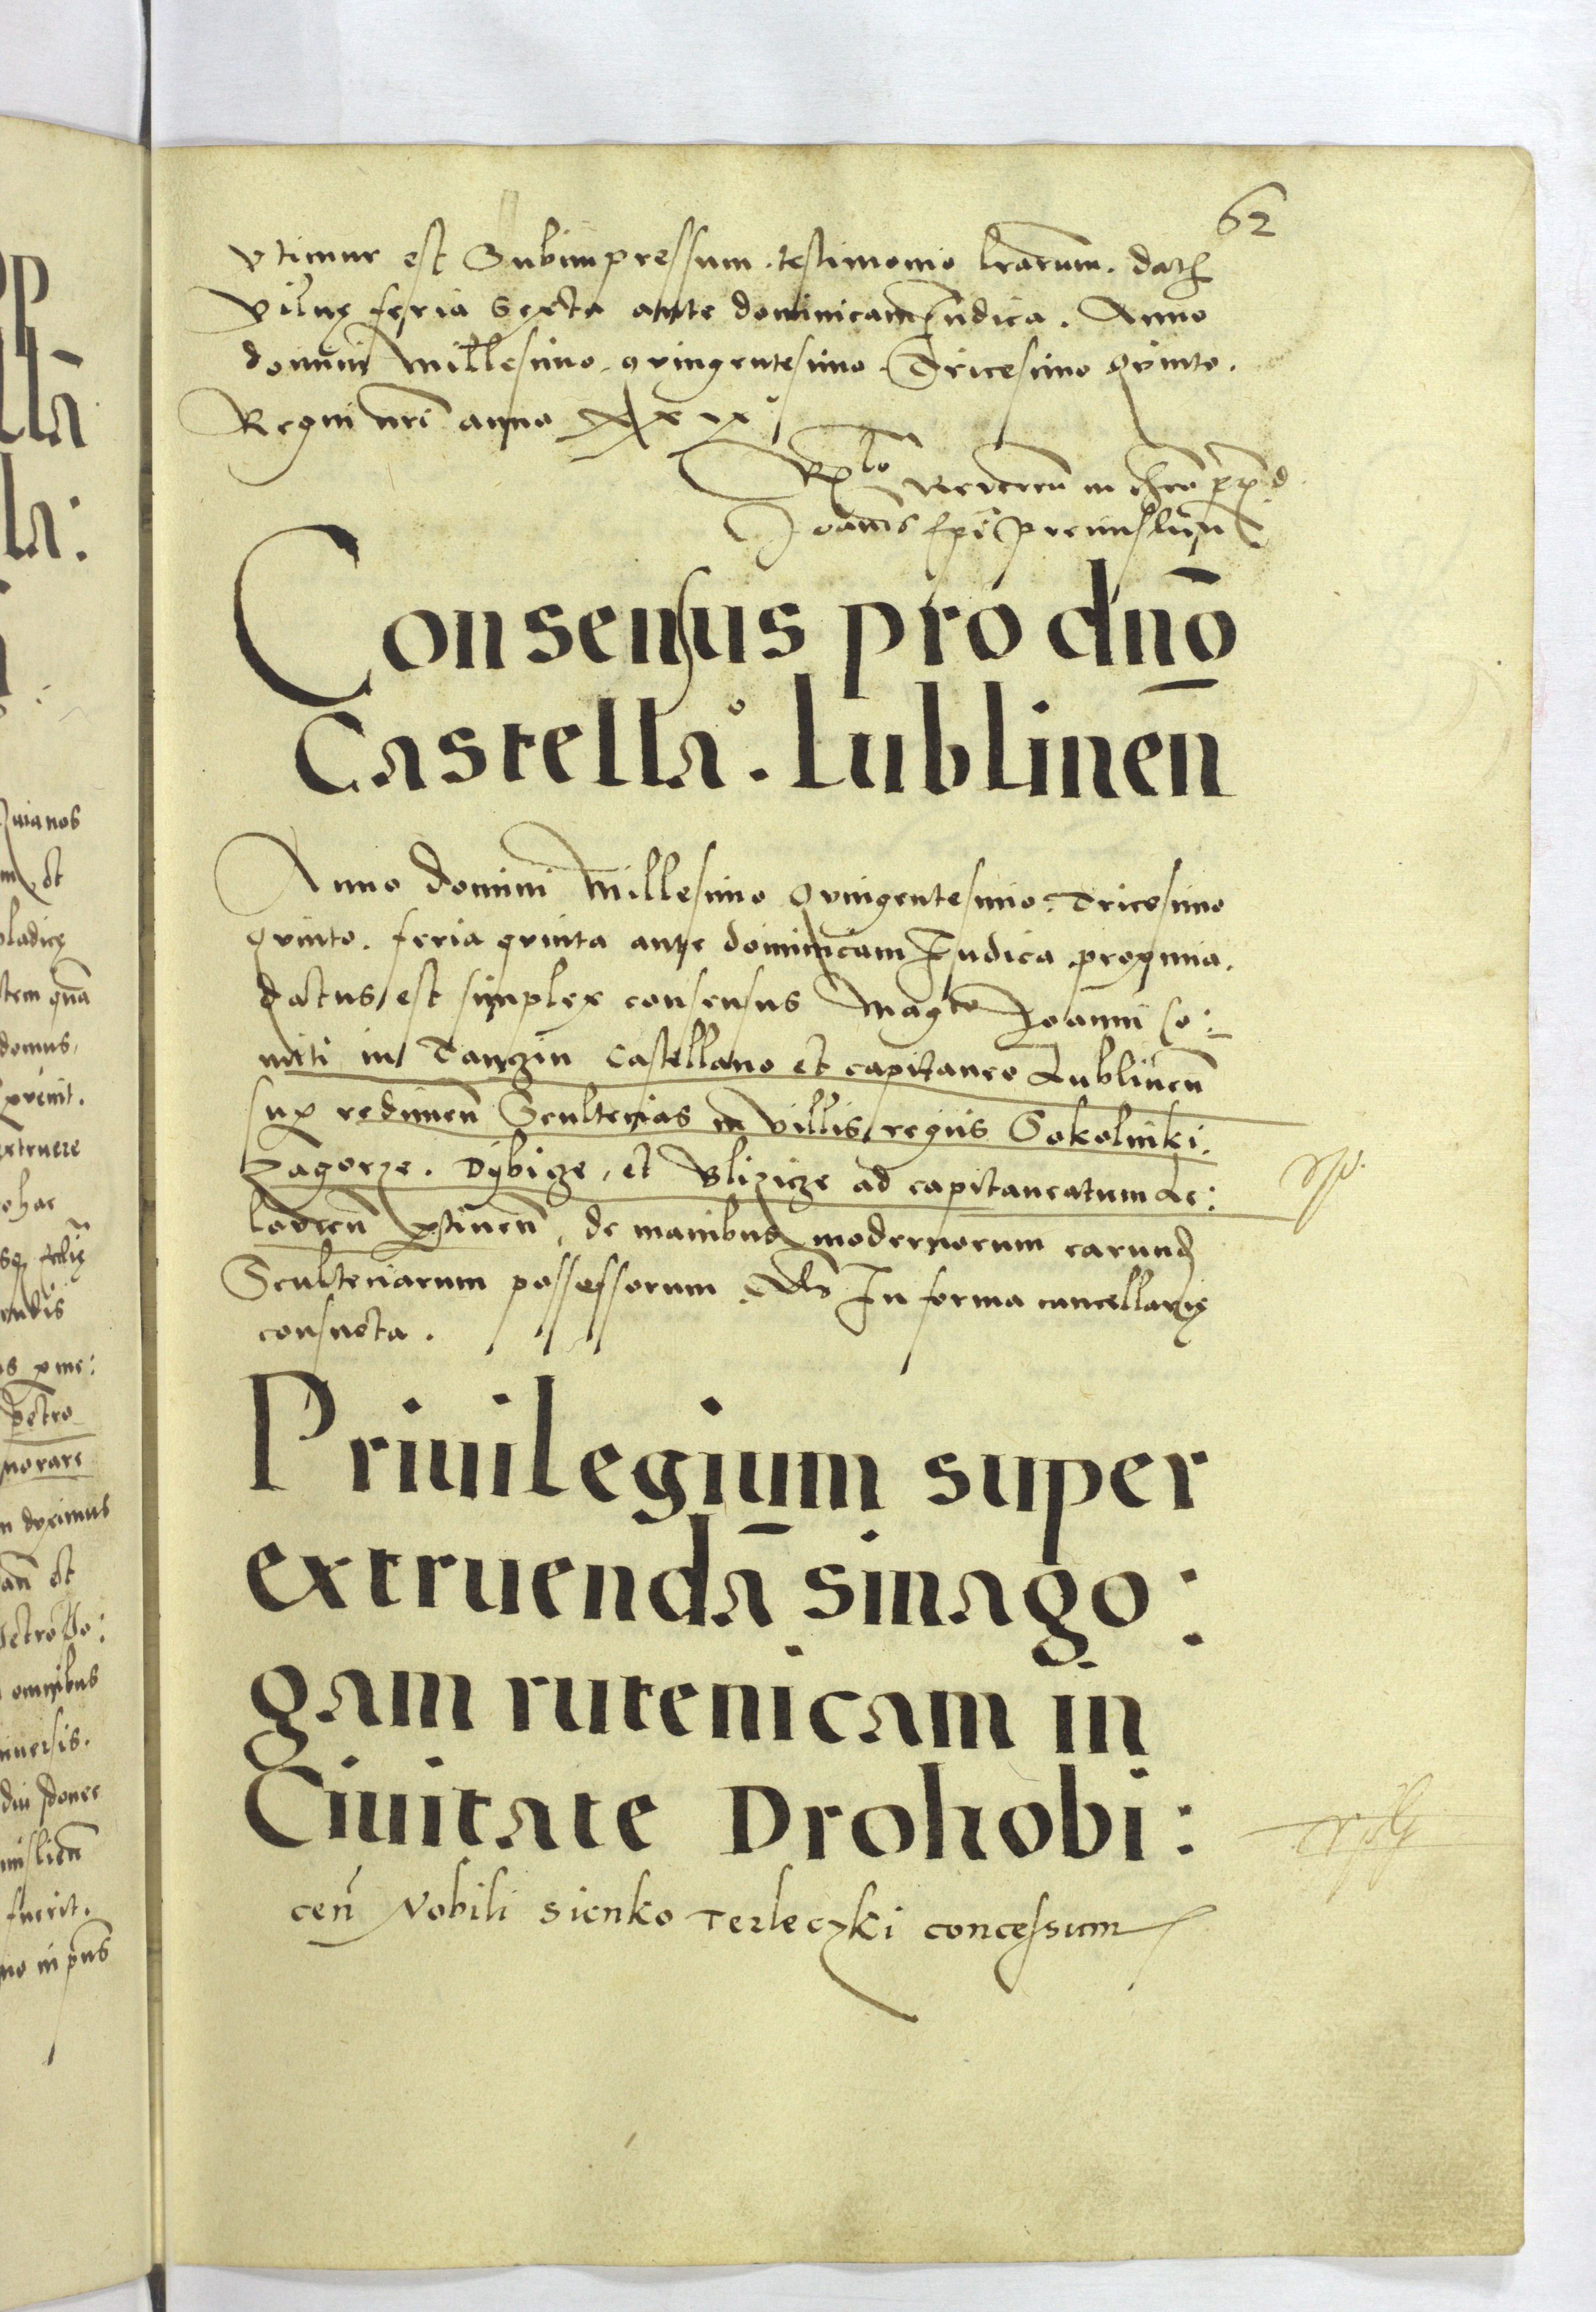 62
vtimur est Subimpressum. testimonio lrarum. dat
vilnę feria sexta ante dominicam Judica. Anno
domini millesimo. quingentesimo. Tricesimo quinto.
Regni nri anno XXIX°
Rlo Reveren in chro p d
Joannis Epi premislien
Consensus pro dno
Castella°. lublinen
Anno domini Millesimo quingentesimo. Tricesimo
quinto. feria quinta ante dominicam Judica proxima.
datus est simplex consensus Magco Joanni co:
miti in Tanczin Castellano et capitaneo Lublinen
sup redimen Scultecias in villis regiis Sokolniki.
Zagorze. Dybicze, et Blizicze ad capitaneatum Le:
lovien ptinen, de manibus modernorum earund
Scultetiarum possessorum. In forma cancellarię
consueta.
Priuilegium super
extruendā sinago:
gam rutenicam in
Ciuitate Drohobi:
cen Nobili Sienko Terleczki concessum